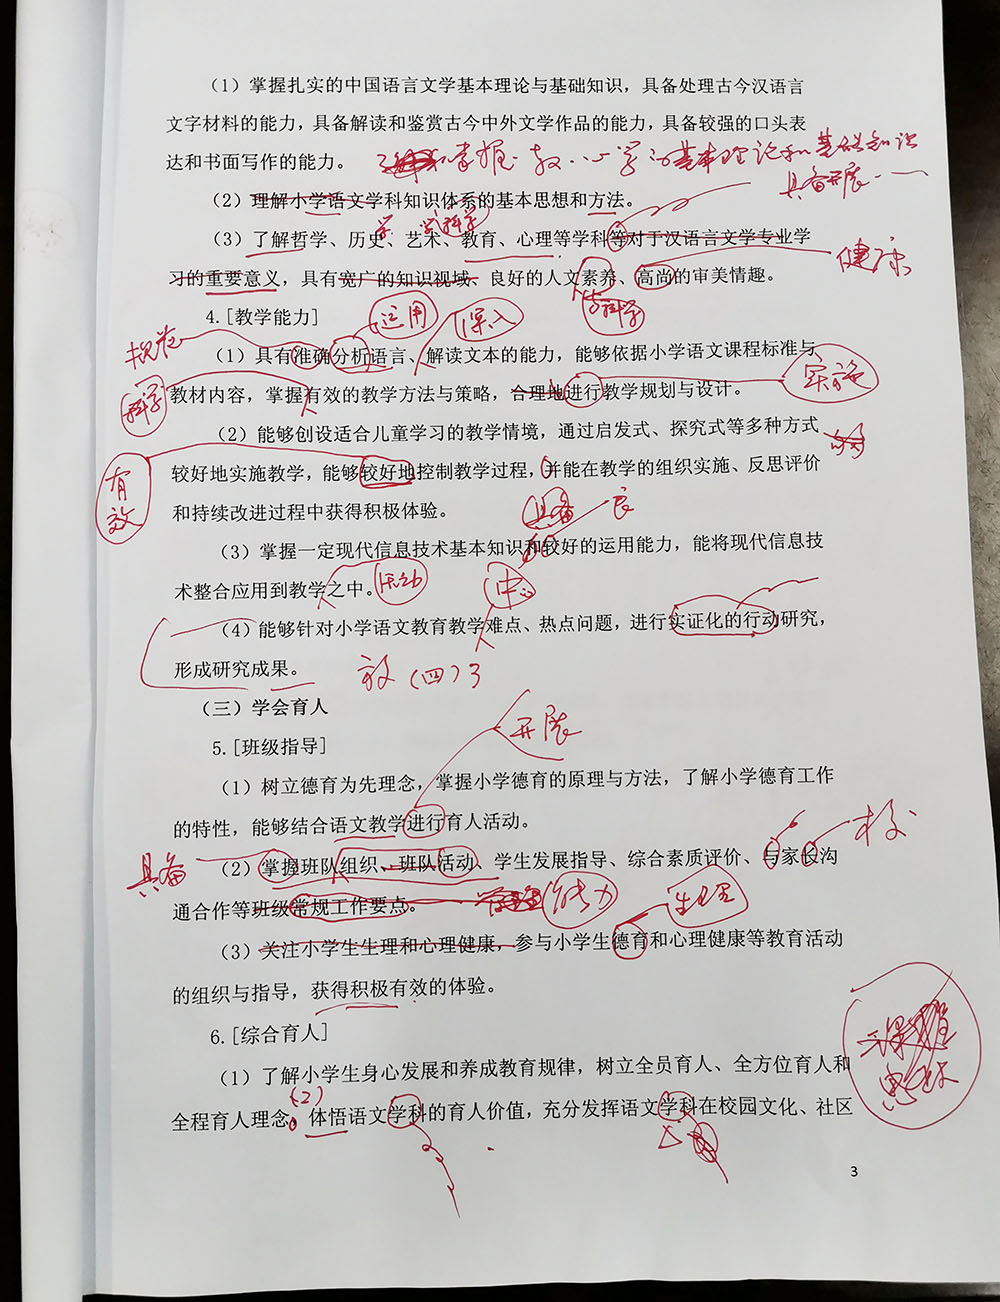 （1）掌握扎实的中国语言文学基本理论与基础知识，具备处理古今汉语言
文字材料的能力，具备解读和鉴赏古今中外文学作品的能力，具备较强的口头表
达和书面写作的能力。
掌握 教 小学 基本理论和基础知识
具备开展
（2）理解小学语文学科知识体系的基本思想和方法。
学 学科学
（3）了解哲学、历史、艺术、教育、心理等学科等对于汉语言文学专业学
健康
习的重要意义，具有宽广的知识视域、良好的人文素养、高尚的审美情趣。
与科学
4.[教学能力]
运用 深入
规范
（1）具有准确分析语言、解读文本的能力，能够依据小学语文课程标准与
实施
科学
教材内容，掌握有效的教学方法与策略，合理地进行教学规划与设计。
（2）能够创设适合儿童学习的教学情境，通过启发式、探究式等多种方式
有效
较好地实施教学，能够较好地控制教学过程，并能在教学的组织实施、反思评价
和持续改进过程中获得积极体验。
具备 良
（3）掌握一定现代信息技术基本知识和较好的运用能力，能将现代信息技
术整合应用到教学之中。
活动 中心
（4）能够针对小学语文教育教学难点、热点问题，进行实证化的行动研究，
形成研究成果。
放（四）3
（三）学会育人
开展
5.[班级指导]
（1）树立德育为先理念，掌握小学德育的原理与方法，了解小学德育工作
的特性，能够结合语文教学进行育人活动。
校
具备
（2）掌握班队组织、班队活动、学生发展指导、综合素质评价、与家长沟
通合作等班级常规工作要点。
能力 生理
（3）关注小学生生理和心理健康，参与小学生德育和心理健康等教育活动
的组织与指导，获得积极有效的体验。
6.[综合育人]
课程
思政
（1）了解小学生身心发展和养成教育规律，树立全员育人、全方位育人和
（2）
全程育人理念。体悟语文学科的育人价值，充分发挥语文学科在校园文化、社区
3